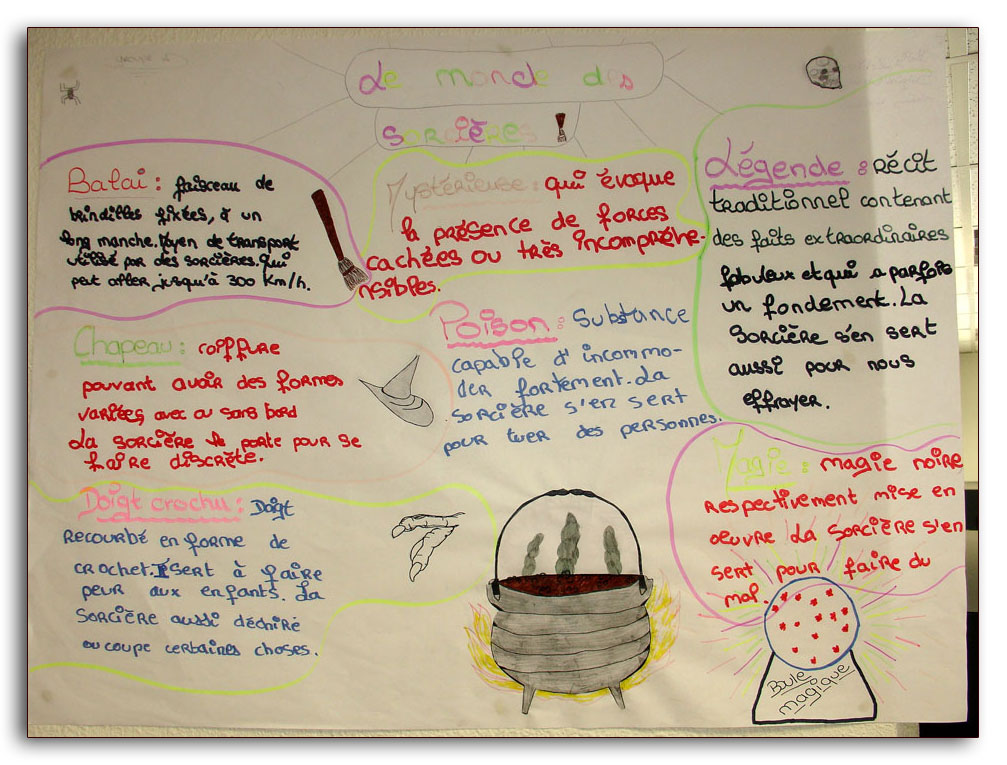 Le monde des
sorcières
Balai : faisceau de
brindilles fixées, à un
long manche. Moyen de transport
utilisé par des sorcières. Qui
peut aller jusqu'à 300 km/h.
Mystérieuse : qui évoque
la présence de forces
cachées ou très incompréhe-
nsibles.
Légende : récit
traditionnel contenant
des faits extraordinaires
fabuleux et qui a parfois
un fondement. La
sorcière s'en sert
aussi pour nous
effrayer.
Chapeau : coiffure
pouvant avoir des formes
variées avec ou sans bord
La sorcière le porte pour se
faire discrète.
Poison : Substance
capable d'incommo-
der fortement. La
sorcière s'en sert
pour tuer des personnes.
Doigt crochu : Doigt
recourbé en forme de
crochet. Sert à faire
peur aux enfants. La
sorcière aussi déchire
ou coupe certaines choses.
Magie : magie noire
respectivement mise en
oeuvre La sorcière s'en
sert pour faire du
mal.
Boule
magique